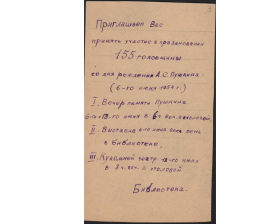 Приглашаем Вас
принять участие в праздновании
155 годовщины
со дня рождения А.С. Пушкина
(6-го июня 1954 г.)
I. Вечер памяти Пушкина
6-го июня в 6 ч. веч.
II. Выставка весь день
в библиотеке.
III. Кукольный театр июня
в 8 ч. веч. в столовой
Библиотека.